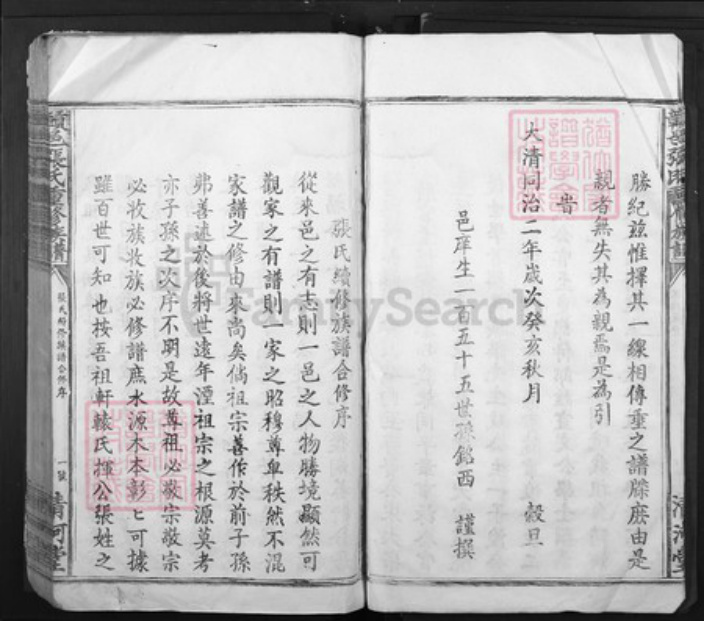 勝紀茲惟擇其一線相傳垂之譜牒庶由是
親者無失其為親焉是為引
旹
大清同治二年歲次癸亥秋月 穀旦
邑庠生一百五十五世孫銘西 謹撰
張氏續修族譜合修序
從來邑之有志則一邑之人物勝境顯然可
觀家之有譜則一家之昭穆尊卑秩然不混
家譜之修由來尚矣倘祖宗善作於前子孫
弗善述於後將世遠年湮祖宗之根源莫考
亦子孫之次序不明是故尊祖必敬宗敬宗
必收族收族必修譜庶水源木本彰彰可據
雖百世可知也按吾祖軒轅氏揮公張姓之
張氏重修族譜
張氏續修族譜合修序
一號
清河堂
清河堂
FamilySearch